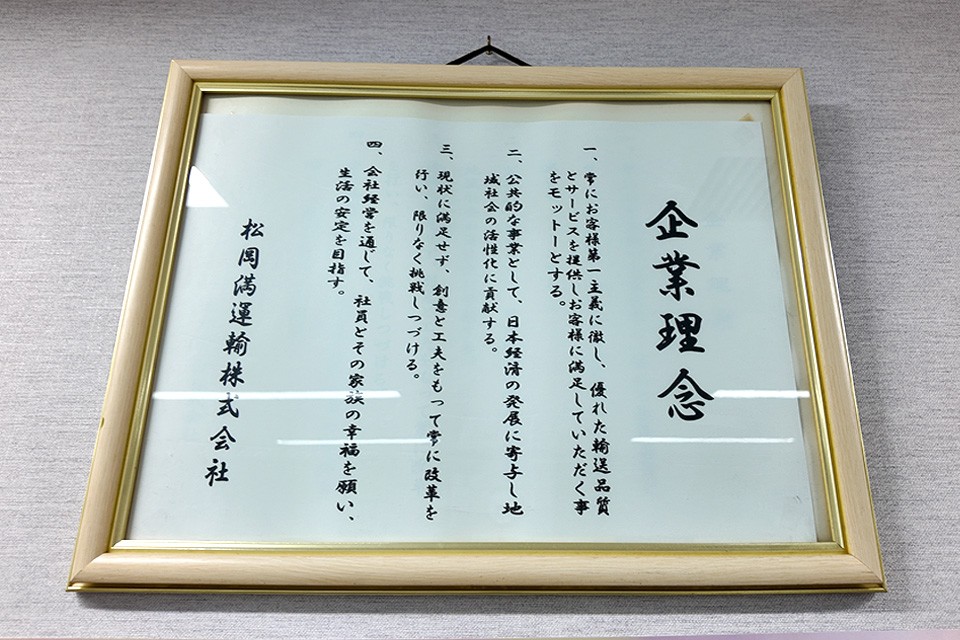 企業理念
一、常にお客様第一主義に徹し、優れた輸送品質
とサービスを提供しお客様に満足していただく事
をモットーとする。
二、公共的な事業として、日本経済の発展に寄与し地
域社会の活性化に貢献する。
三、現状に満足せず、創意と工夫をもって常に改革を
行い、限りなく挑戦しつづける。
四、会社経営を通じて、社員とその家族の幸福を願い、
生活の安定を目指す。
松岡満運輸株式会社